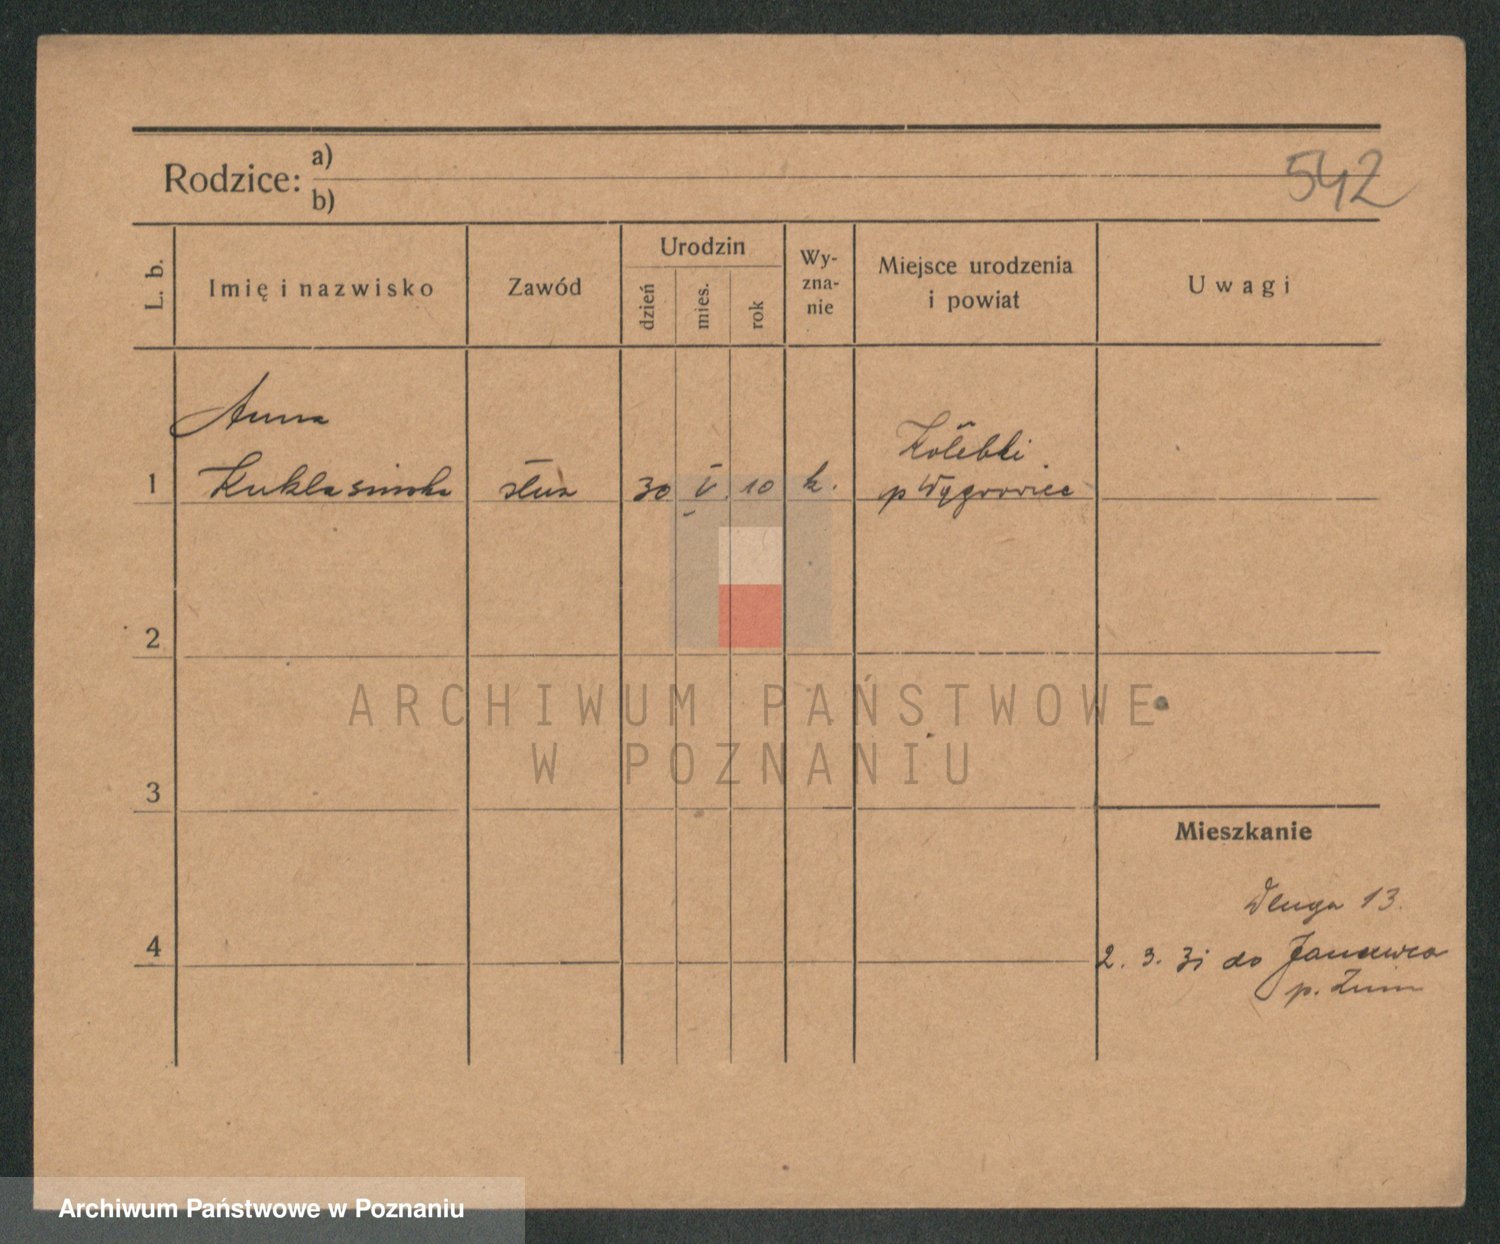 542
Rodzice: a)
b)
L. b.
Imię i nazwisko
Zawód
Urodzin
dzień
mies.
rok
Wy-
zna-
nie
Miejsce urodzenia
i powiat
Uwagi
Anna
1 Kuklasińska służ 30 V. 10 k.
p Wągrowiec
2
ARCHIWUM PAŃSTWOWE
W POZNANIU
3
Mieszkanie
Długa 13.
4
2. 3. 31 do Janowca
p. Żnin
Archiwum Państwowe w Poznaniu